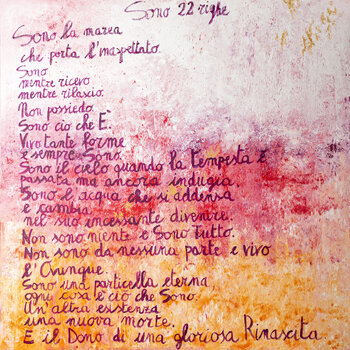 Sono 22 righe
Sono la marea
che porta l'inaspettato.
Sono
mentre ricevo
mentre rilascio.
Non possiedo.
Sono ciò che È.
Vivo tante forme
e sempre Sono.
Sono il cielo quando la tempesta È
passata ma ancora indugia.
Sono l'acqua che si addensa
e cambia
nel suo incessante divenire.
Non sono niente e Sono Tutto.
Non sono da nessuna parte e vivo
l'Ovunque.
Sono una particella eterna,
ogni cosa è ciò che Sono.
Un'altra esistenza
una nuova morte.
E il Dono di una gloriosa Rinascita